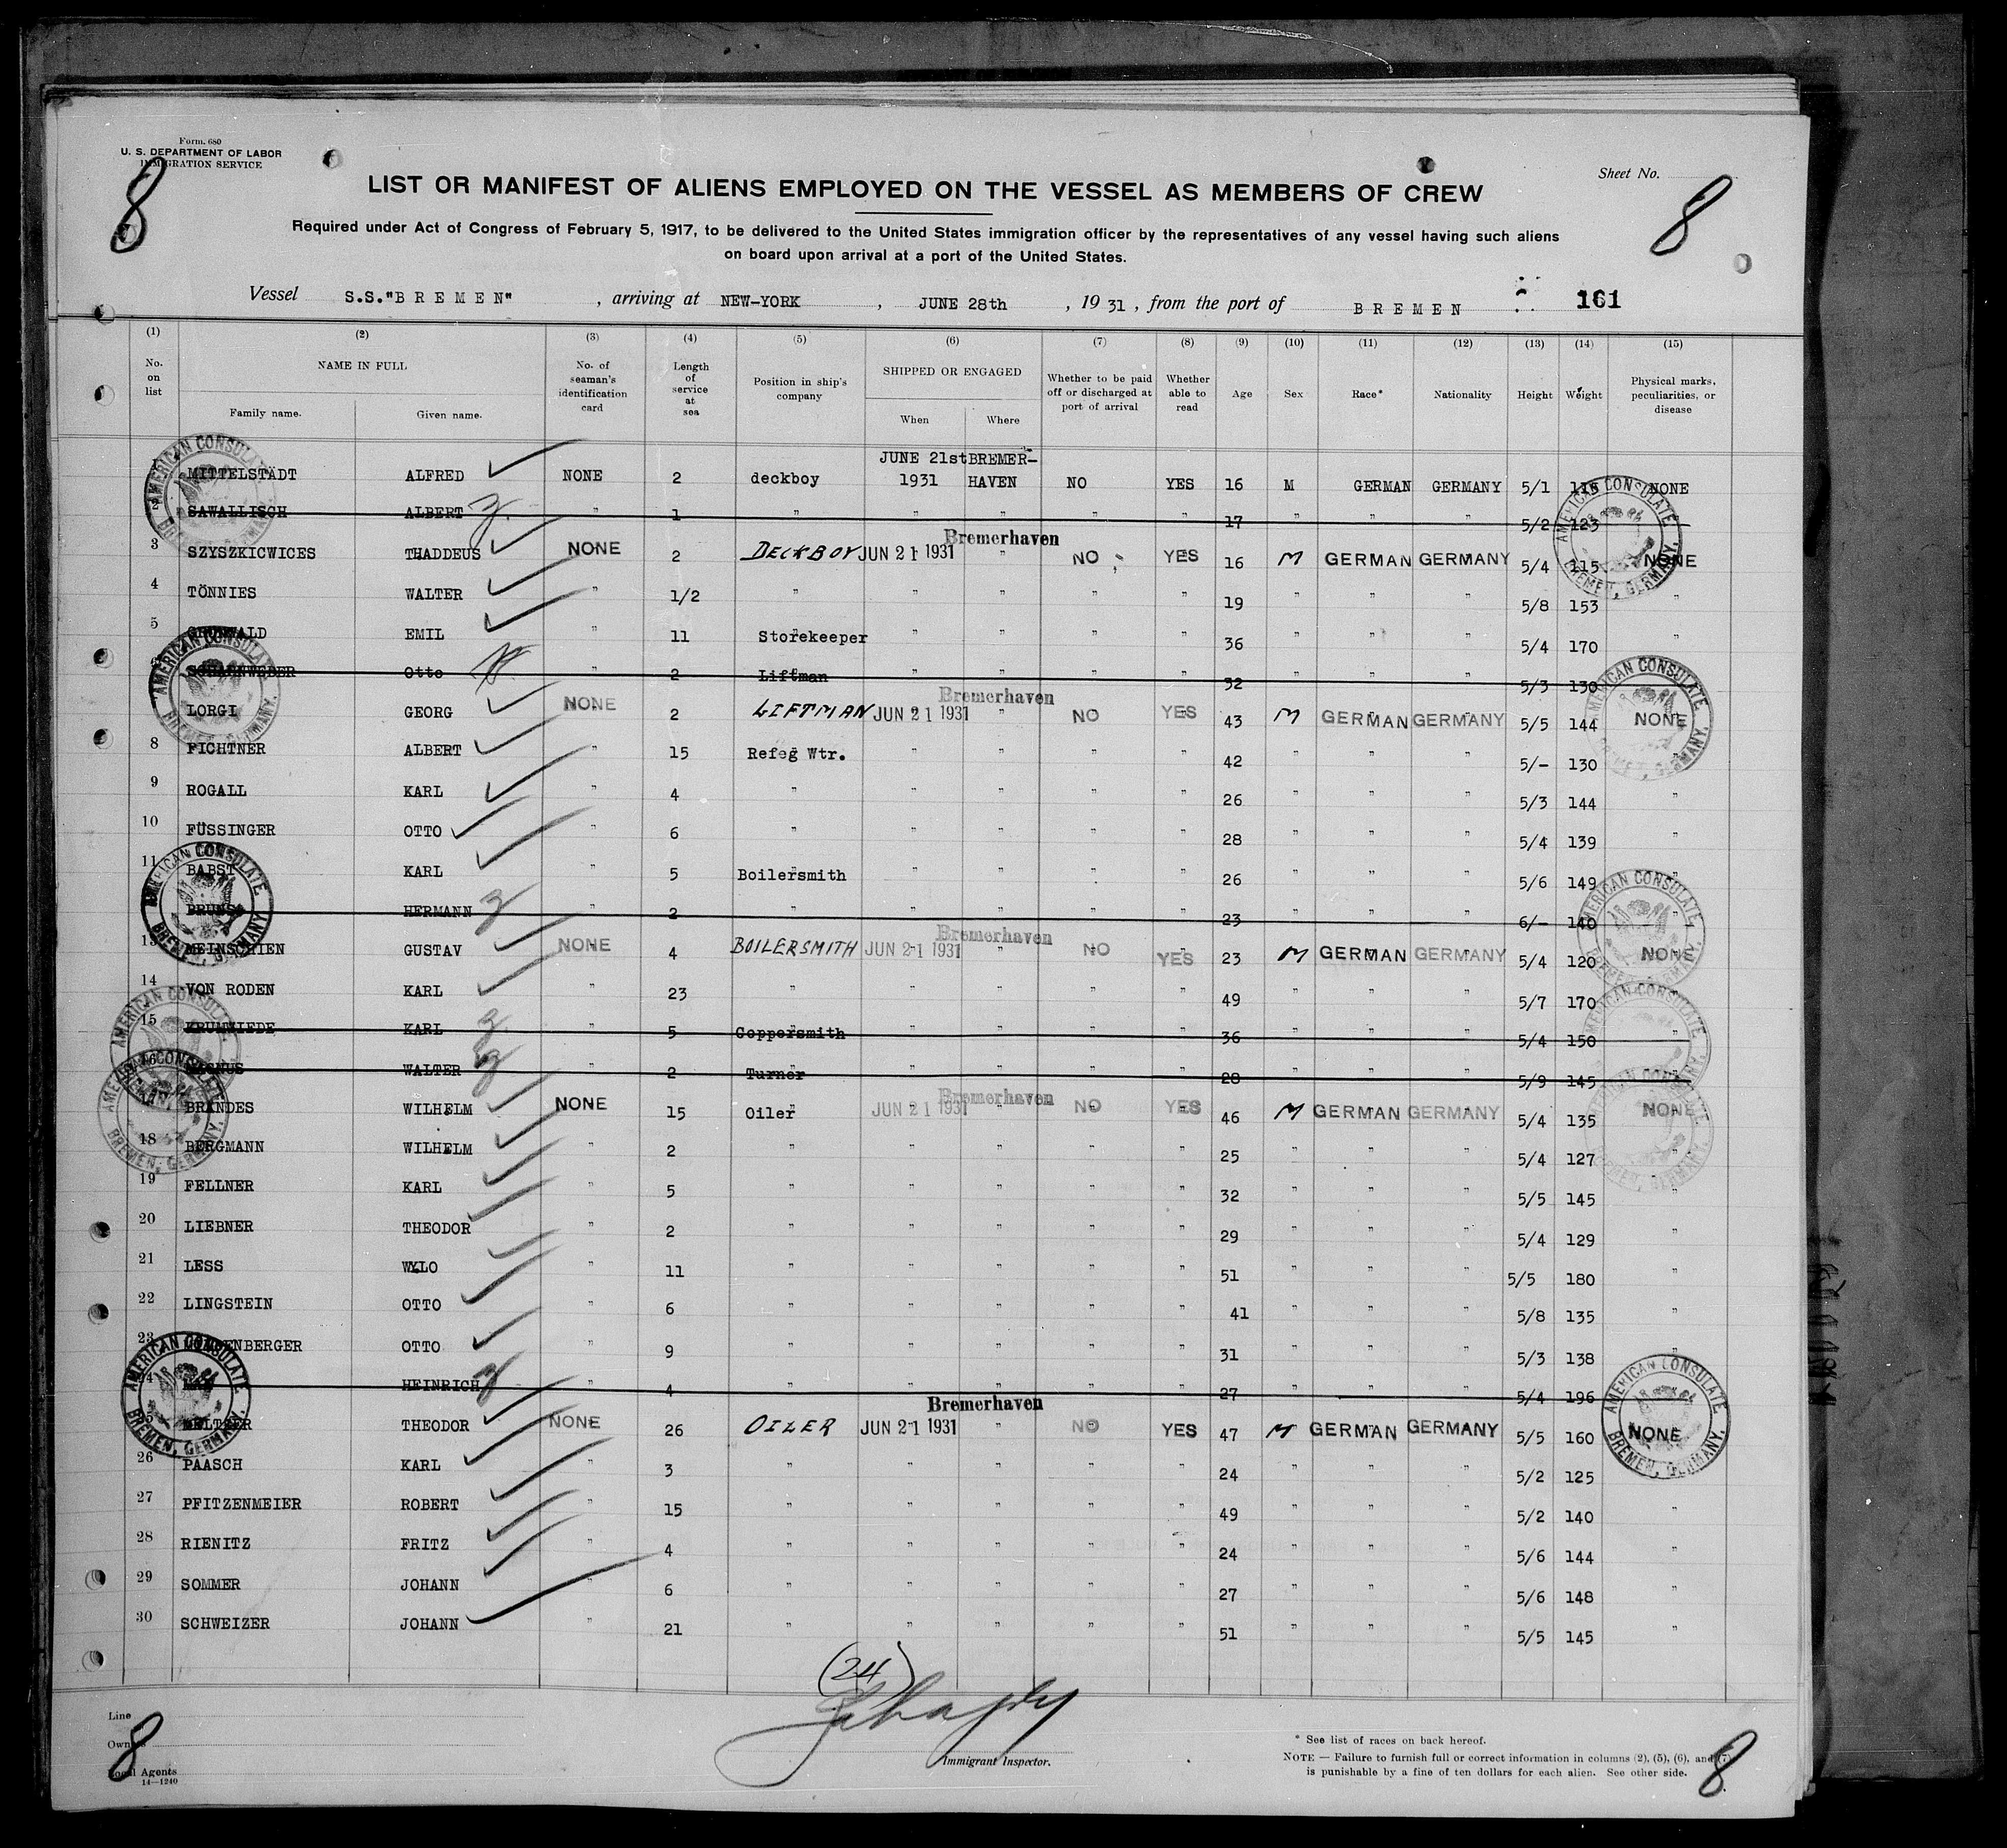 Form. 680
U. S. DEPARTMENT OF LABOR
IMMIGRATION SERVICE
8
Sheet No.
8
LIST OR MANIFEST OF ALIENS EMPLOYED ON THE VESSEL AS MEMBERS OF CREW
Required under Act of Congress of February 5, 1917, to be delivered to the United States immigration officer by the representatives of any vessel having such aliens
on board upon arrival at a port of the United States.
Vessel S.S."BREMEN", arriving at NEW-YORK, JUNE 28th, 1931, from the port of BREMEN 161
(1) (2) (3) (4) (5) (6) (7) (8) (9) (10) (11) (12) (13) (14) (15)
No. on list NAME IN FULL Family name. Given name. No. of seaman's identification card Length of service at sea Position in ship's company SHIPPED OR ENGAGED When Where Whether to be paid off or discharged at port of arrival Whether able to read Age Sex Race* Nationality Height Weight Physical marks, peculiarities, or disease
1 MITTELSTÄDT ALFRED NONE 2 deckboy JUNE 21st 1931 BREMER-HAVEN NO YES 16 M GERMAN GERMANY 5/1 115 NONE
2 SAWALLISCH ALBERT " 1 " " " " " 17 " " " 5/2 123
3 SZYSZKICWICES THADDEUS NONE 2 DECKBOY JUN 21 1931 Bremerhaven NO YES 16 M GERMAN GERMANY 5/4 115 NONE
4 TÖNNIES WALTER " 1/2 " " " " " 19 " " " 5/8 153 "
5 GRUNWALD EMIL " 11 Storekeeper " " " " 36 " " " 5/4 170 "
Otto " 2 Liftman " " " " 32 " " " 5/3 130
LORGI GEORG NONE 2 LIFTMAN JUN 21 1931 Bremerhaven NO YES 43 M GERMAN GERMANY 5/5 144 NONE
8 FICHTNER ALBERT " 15 Refeg Wtr. " " " " 42 " " " 5/- 130 "
9 ROGALL KARL " 4 " " " " " 26 " " " 5/3 144 "
10 FÜSSINGER OTTO " 6 " " " " " 28 " " " 5/4 139 "
11 BABST KARL " 5 Boilersmith " " " " 26 " " " 5/6 149 "
BRUNS HERMANN " 2 " " " " " 23 " " " 6/- 140 "
13 MEINSCHIEN GUSTAV NONE 4 BOILERSMITH JUN 21 1931 Bremerhaven NO YES 23 M GERMAN GERMANY 5/4 120 NONE
14 VON RODEN KARL " 23 " " " " " 49 " " " 5/7 170 "
15 KRUMWIEDE KARL " 5 Coppersmith " " " " 36 " " " 5/4 150 "
16 MAGNUS WALTER " 2 Turner " " " " 28 " " " 5/9 145 "
BRANDES WILHELM NONE 15 Oiler JUN 21 1931 Bremerhaven NO YES 46 M GERMAN GERMANY 5/4 135 NONE
18 BERGMANN WILHELM " 2 " " " " " 25 " " " 5/4 127 "
19 FELLNER KARL " 5 " " " " " 32 " " " 5/5 145 "
20 LIEBNER THEODOR " 2 " " " " " 29 " " " 5/4 129 "
21 LESS WYLO " 11 " " " " " 51 " " " 5/5 180 "
22 LINGSTEIN OTTO " 6 " " " " " 41 " " " 5/8 135 "
23 OTTO " 9 " " " " " 31 " " " 5/3 138 "
HEINRICH " 4 " " " " " 27 " " " 5/4 196
THEODOR NONE 26 OILER JUN 21 1931 Bremerhaven NO YES 47 M GERMAN GERMANY 5/5 160 NONE
26 PAASCH KARL " 3 " " " " " 24 " " " 5/2 125
27 PFITZENMEIER ROBERT " 15 " " " " " 49 " " " 5/2 140 "
28 RIENITZ FRITZ " 4 " " " " " 24 " " " 5/6 144 "
29 SOMMER JOHANN " 6 " " " " " 27 " " " 5/6 148 "
30 SCHWEIZER JOHANN " 21 " " " " " 51 " " " 5/5 145 "
AMERICAN CONSULATE
BREMEN, GERMANY.
(24)
Immigrant Inspector.
Line
Owners
Local Agents
14—1240
8
* See list of races on back hereof.
NOTE — Failure to furnish full or correct information in columns (2), (5), (6), and (7)
is punishable by a fine of ten dollars for each alien. See other side.
8